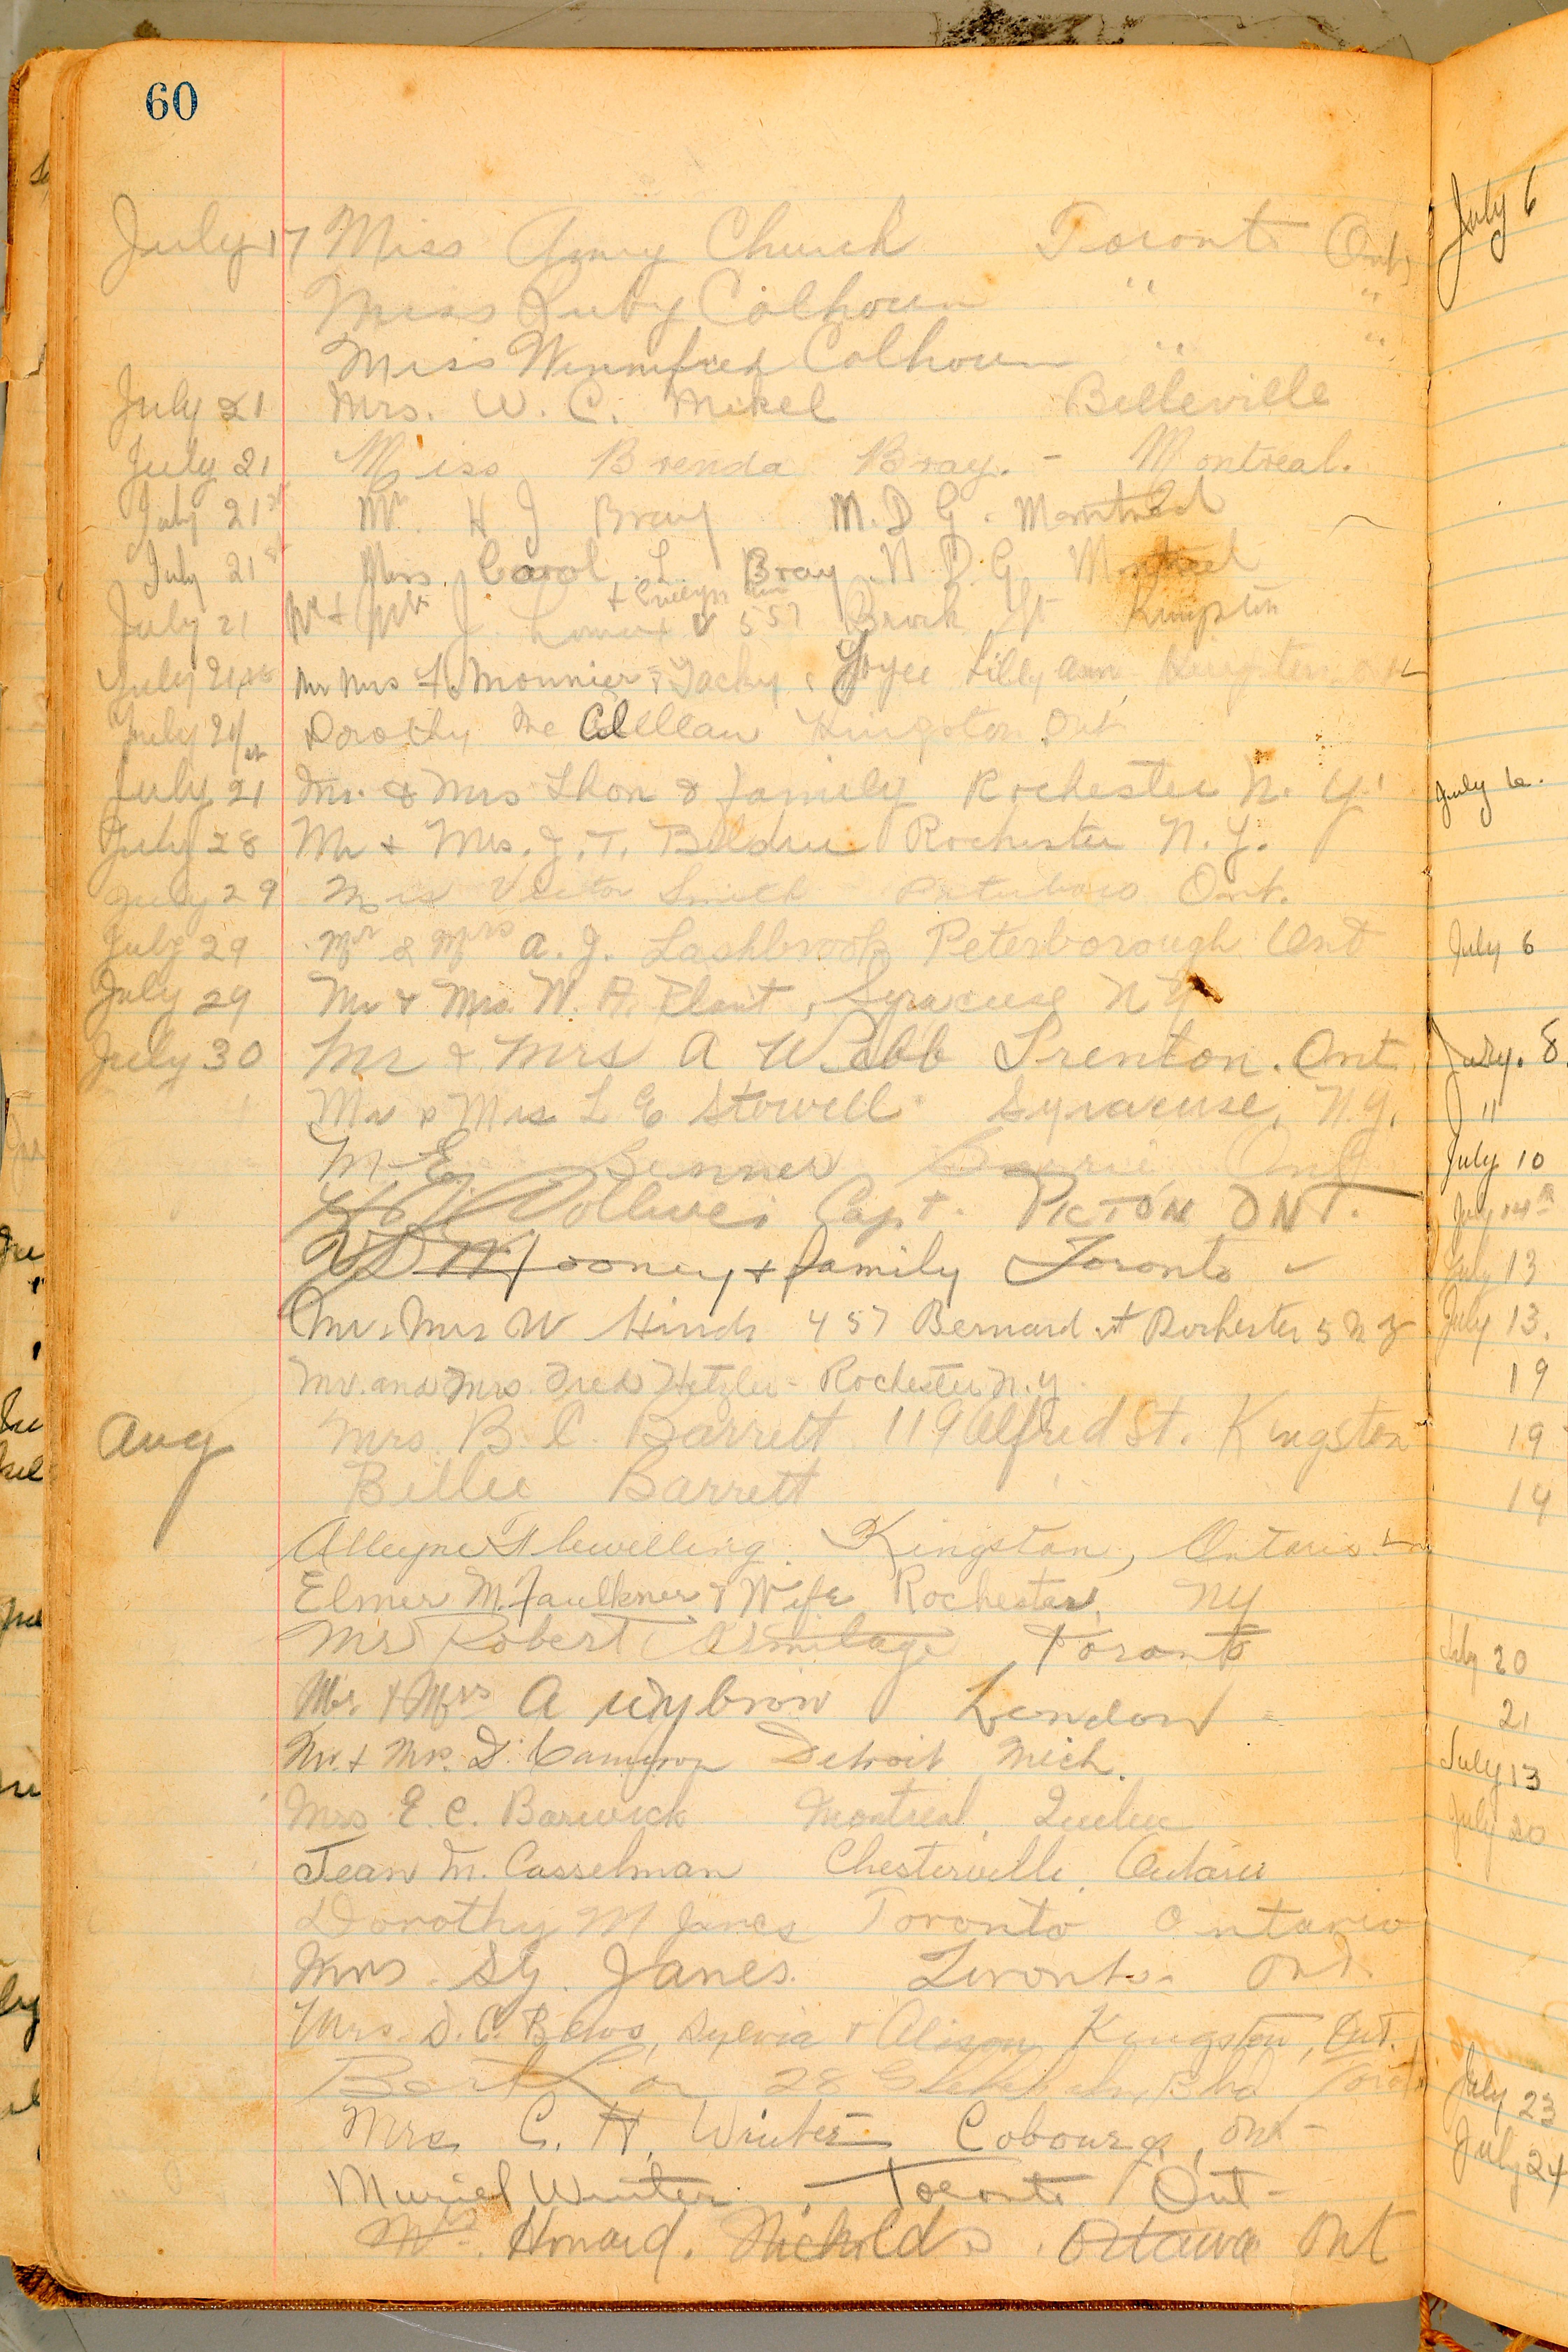 60
July 17 Miss Amy Church Toronto Ont
Miss Ruby Calhoun " "
Miss Winnifred Calhoun " "
July 21 Mrs. W. C. Mikel Belleville
July 21 Miss Brenda Bray. - Montreal.
July 21st Mr. H J Bray N. D G. Montreal
July 21st Mrs. Carol L. Bray N. D. G. Montreal
+ Evelyn
July 21 Mr & Mrs J. 557 Brock St Kingston
July 21st Mr Mrs Monnier & Jacky & Joyce Lilly Ann Kingston Ont
July 21st Dorothy Mc Clellan Kingston Ont
July 21 Mr. & Mrs Thon & family Rochester N. Y.
July 28 Mr & Mrs. J. T. Rochester N. Y.
July 29 Mrs Victor Smith Peterboro Ont.
July 29 Mr & Mrs A. J. Lashbrook Peterborough Ont
July 29 Mr & Mrs. W. A. Plant, Syracuse N Y
July 30 Mr & Mrs A Webb Trenton. Ont.
Mr & Mrs L E Stowell Syracuse, N.Y.
M. E. Benner Barrie Ont
Capt. PICTON ONT.
Mooney & family Toronto
Mr. Mrs W Hinds 457 Bernard st Rochester 5 N Y
Mr. and Mrs. Fred Hetzler - Rochester N.Y.
Aug Mrs. B. C. Barrett 119 Alfred St. Kingston
Billie Barrett
Alleyne Flewelling. Kingston, Ontario.
Elmer M. Faulkner & Wife Rochester, NY
Mr Robert Armitage Toronto
Mr & Mrs A Wybrow London
Mr. & Mrs. D. Cameron Detroit Mich.
Mrs E. C. Barwick Montreal, Quebec
Jean M. Casselman Chesterville, Ontario
Dorothy M Janes Toronto Ontario
Mrs. Sy. Janes. Toronto. Ont.
Mrs. D. C. Bews, Sylvia & Alison Kingston, Ont.
Bert 28 Blvd
Mrs C. H. Winter Cobourg, Ont-
Muriel Winter. Toronto Ont-
Mrs. Howard. Nicholds. Ottawa Ont
July 6
July 6.
July 6
July. 8.
"
July 10
July 14th
July 13
July 13.
19
19
14
July 20
21
July 13
July 20
July 23
July 24